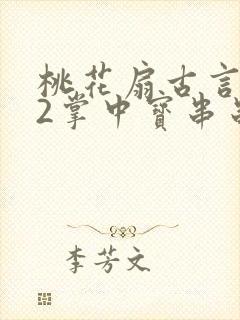 桃花扇古言
2掌中寳串
李芳文